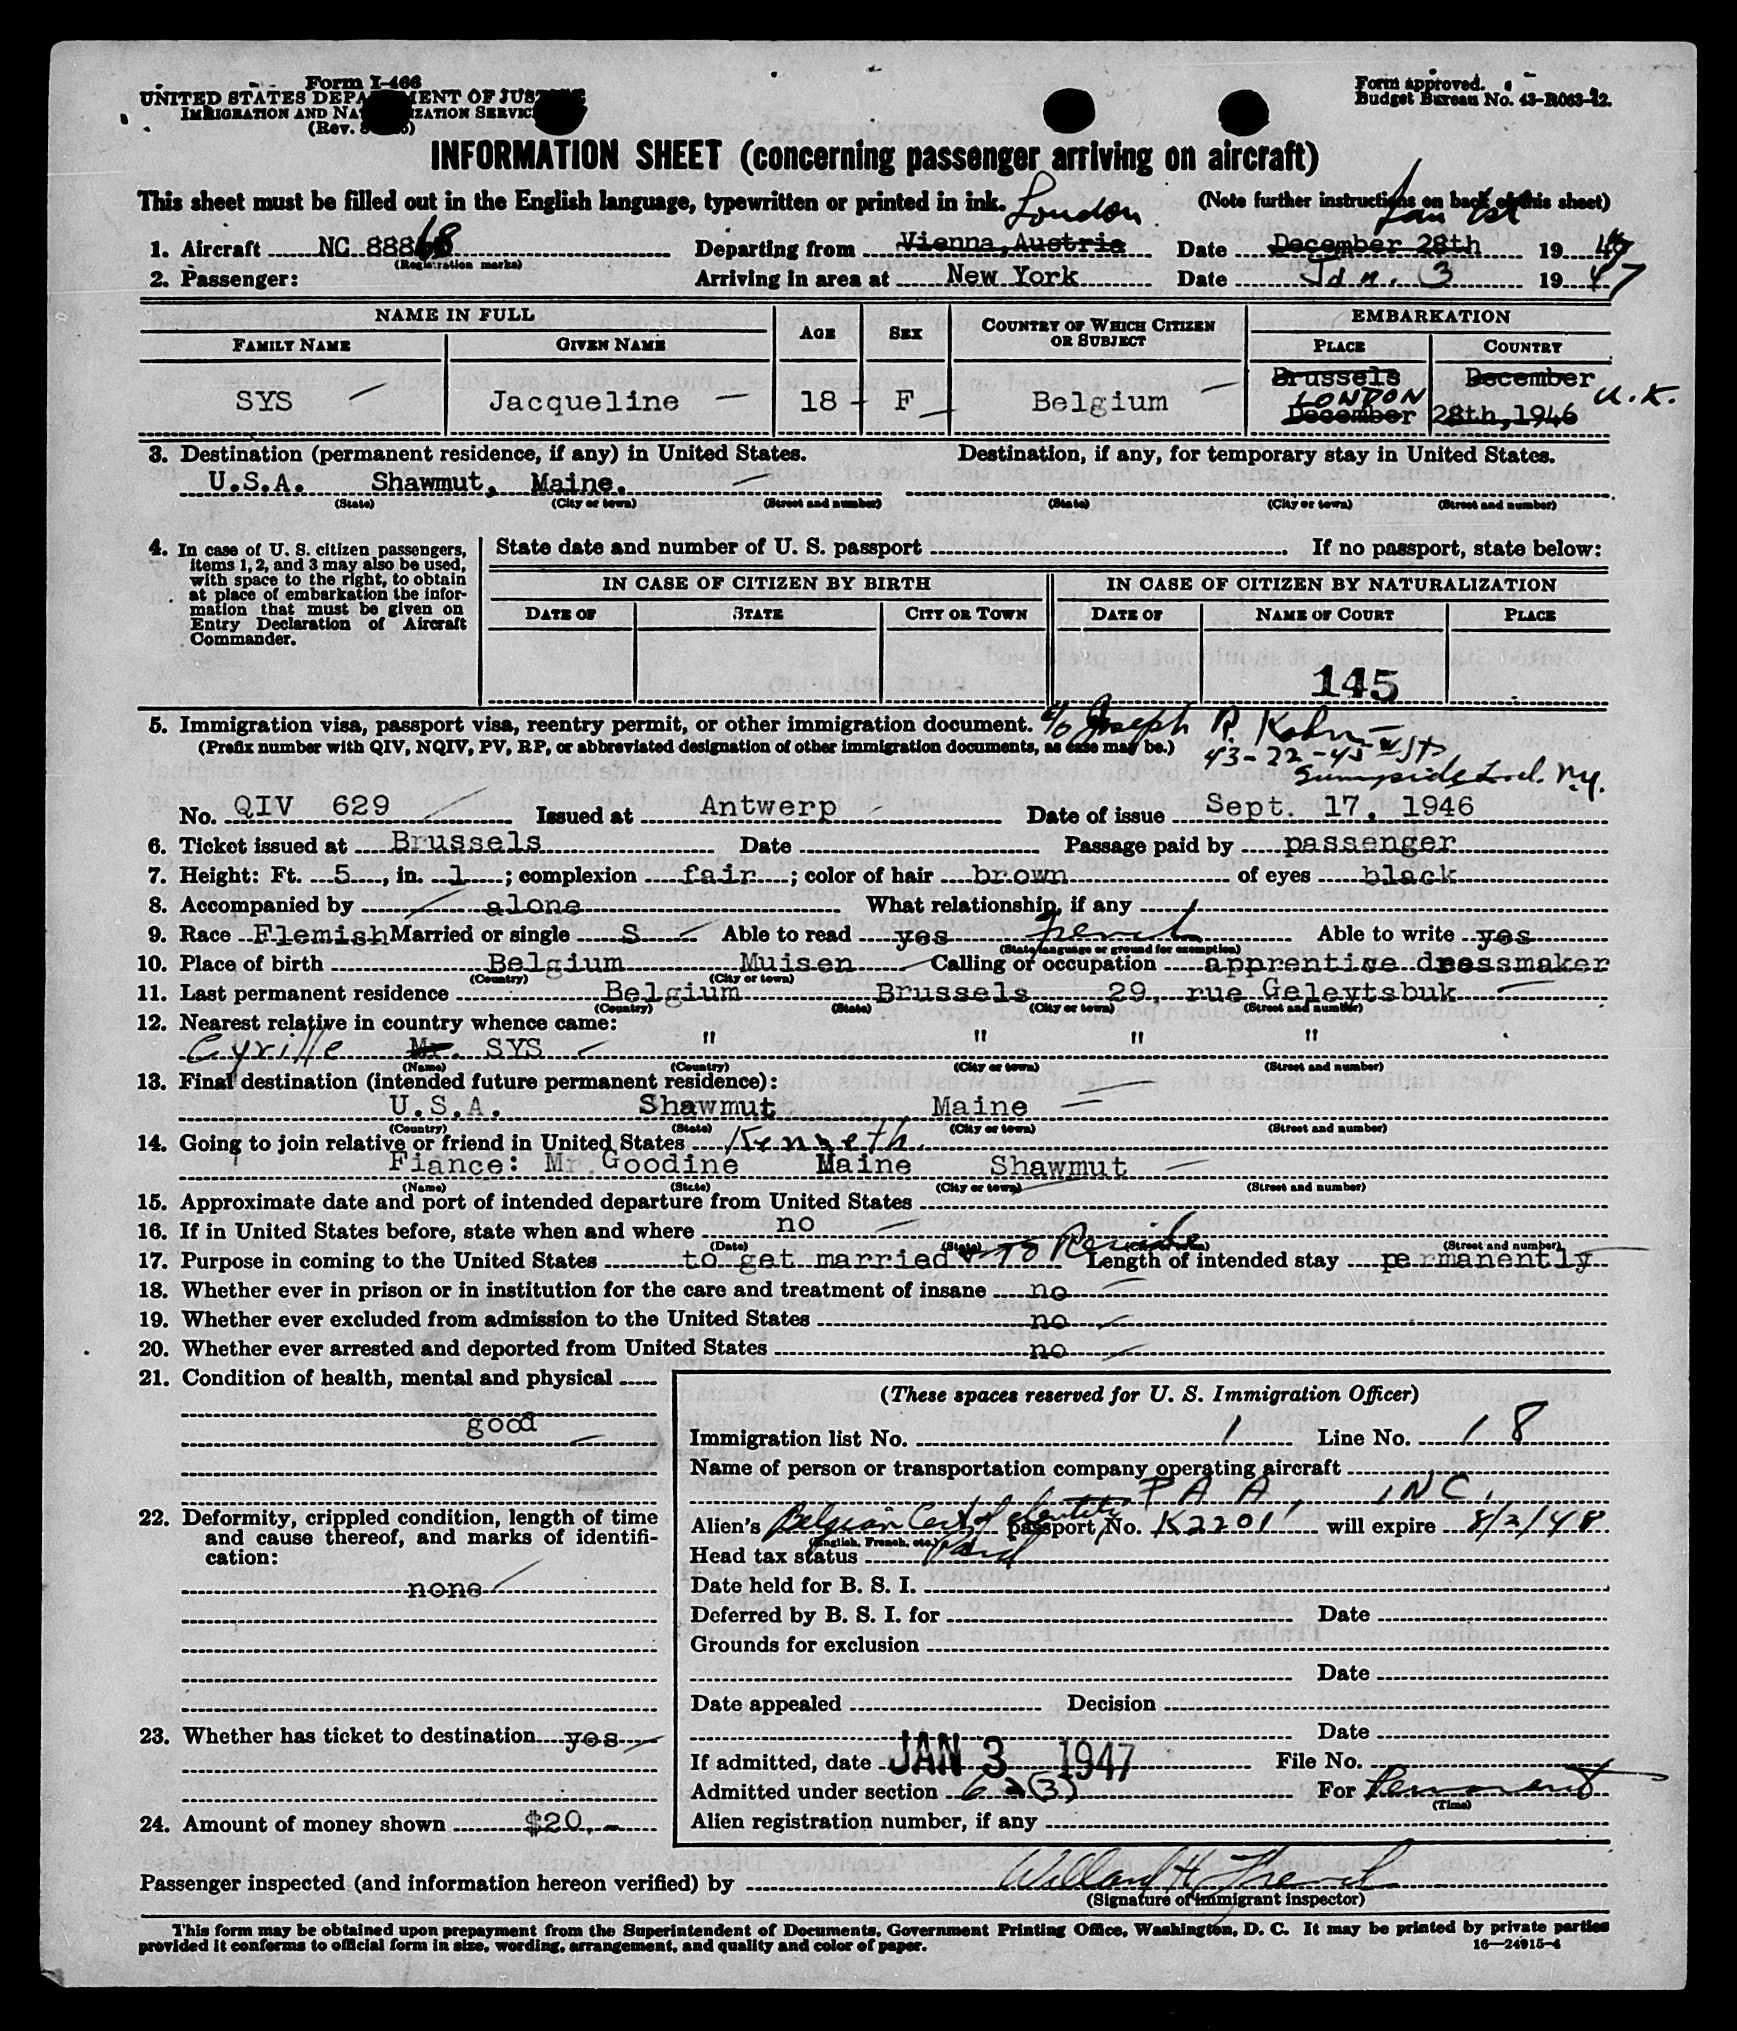 Form I-466
UNITED STATES DEPARTMENT OF JUSTICE
IMMIGRATION AND NATURALIZATION SERVICE
(Rev.
Form approved.
Budget Bureau No. 43-R063-12.
INFORMATION SHEET (concerning passenger arriving on aircraft)
This sheet must be filled out in the English language, typewritten or printed in ink. (Note further instructions on back of this sheet)
London Jan 1st
1. Aircraft NC 88868 Departing from Vienna, Austria Date December 28th 1947
(Registration marks)
2. Passenger: Arriving in area at New York Date Jan. 3 1947
NAME IN FULL AGE SEX COUNTRY OF WHICH CITIZEN OR SUBJECT EMBARKATION
FAMILY NAME GIVEN NAME PLACE COUNTRY
Brussels December
SYS Jacqueline 18 F Belgium LONDON U.K.
December 28th, 1946
3. Destination (permanent residence, if any) in United States. Destination, if any, for temporary stay in United States.
U.S.A. Shawmut, Maine.
(State) (City or town) (Street and number) (State) (City or town) (Street and number)
4. In case of U. S. citizen passengers, items 1, 2, and 3 may also be used, with space to the right, to obtain at place of embarkation the information that must be given on Entry Declaration of Aircraft Commander.
State date and number of U. S. passport . If no passport, state below:
IN CASE OF CITIZEN BY BIRTH IN CASE OF CITIZEN BY NATURALIZATION
DATE OF STATE CITY OR TOWN DATE OF NAME OF COURT PLACE
145
5. Immigration visa, passport visa, reentry permit, or other immigration document. c/o Joseph R. Kahn
(Prefix number with QIV, NQIV, PV, RP, or abbreviated designation of other immigration documents, as case may be.) 43-22-45 St
Sunnyside N.Y.
No. QIV 629 Issued at Antwerp Date of issue Sept. 17, 1946
6. Ticket issued at Brussels Date Passage paid by passenger
7. Height: Ft. 5, in. 1; complexion fair; color of hair brown of eyes black
8. Accompanied by alone What relationship, if any
9. Race Flemish Married or single S Able to read yes French Able to write yes
(State language or ground for exemption)
10. Place of birth Belgium Muisen Calling or occupation apprentice dressmaker
(Country) (City or town)
11. Last permanent residence Belgium Brussels 29, rue Geleytsbuk
(Country) (State) (City or town) (Street and number)
12. Nearest relative in country whence came:
Cyrille Mr. SYS " " " "
(Name) (Country) (City or town) (Street and number)
13. Final destination (intended future permanent residence):
U.S.A. Shawmut Maine
(Country) (State) (City or town) (Street and number)
14. Going to join relative or friend in United States Kenneth
Fiance: Mr. Goodine Maine Shawmut
(Name) (State) (City or town) (Street and number)
15. Approximate date and port of intended departure from United States
16. If in United States before, state when and where no
(Date) (State) (City or town) (Street and number)
17. Purpose in coming to the United States to get married & To Reside Length of intended stay permanently
18. Whether ever in prison or in institution for the care and treatment of insane no
19. Whether ever excluded from admission to the United States no
20. Whether ever arrested and deported from United States no
21. Condition of health, mental and physical
good
22. Deformity, crippled condition, length of time and cause thereof, and marks of identification:
none
23. Whether has ticket to destination yes
24. Amount of money shown $20.-
(These spaces reserved for U. S. Immigration Officer)
Immigration list No. 1 Line No. 18
Name of person or transportation company operating aircraft
P A A, INC.
Alien's Belgian Cert of Identity passport No. K2201 will expire 8/2/48
(English, French, etc.)
Head tax status Paid
Date held for B. S. I.
Deferred by B. S. I. for Date
Grounds for exclusion
Date
Date appealed Decision
Date
If admitted, date JAN 3 1947 File No.
Admitted under section 6a(3) For Permanent
(Time)
Alien registration number, if any
Passenger inspected (and information hereon verified) by Willard H. French
(Signature of immigrant inspector)
This form may be obtained upon prepayment from the Superintendent of Documents, Government Printing Office, Washington, D. C. It may be printed by private parties
provided it conforms to official form in size, wording, arrangement, and quality and color of paper. 16—24915-4